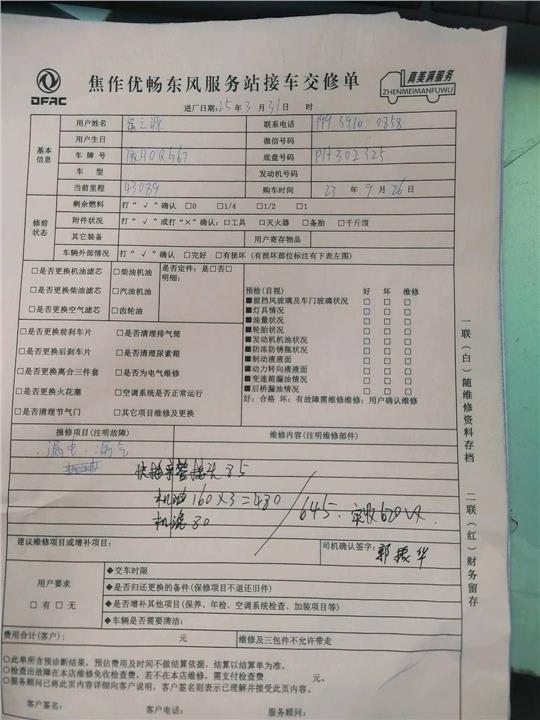 DFAC
焦作优畅东风服务站接车交修单
真美满服务
ZHENMEIMANFUWU
进厂日期:25年3月31日 时
基本信息
用户姓名 联系电话 199 3910 0358
用户生日 微信号码
车牌号 豫H0Q567 底盘号码 PH302325
车型 发动机号码
当前里程 43089 购车时间 23年9月26日
修前状态
剩余燃料 打“√”确认 □0 □1/4 □1/2 □1
附件状况 打“√”或打“×”确认:□工具 □灭火器 □备胎 □千斤顶
其它装备 用户寄存物品
车辆外部情况 打“√”确认 □完好 □有损坏(有损坏部位标注有下表左图)
□是否更换机油滤芯 □柴油机油 是否定件:是□否□
明细:
□是否更换柴油滤芯 □汽油机油
□是否更换空气滤芯 □齿轮油
□是否更换前刹车片 □是否清理排气筒
□是否更换后刹车片 □是否清理尿素箱
□是否更换离合三件套 □是否为电气维修
□是否更换火花塞 □空调系统是否正常运行
□是否清理节气门 □其它项目维修及更换
预检(目视) 好 坏 维修
■前挡风玻璃及车门玻璃状况 □ □ □
■灯具情况 □ □ □
■油量状况 □ □ □
■轮胎状况 □ □ □
■发动机机油状况 □ □ □
■防冻防锈瓶状况 □ □ □
■制动液液面 □ □ □
■动力转向液液面 □ □ □
■变速箱漏油情况 □ □ □
■后桥漏油情况 □ □ □
好:合格 坏:有故障需维修维修:用户确认维修
报修项目(注明故障) 维修内容(注明维修部件)
漏电.漏气
快插弯管接头85
机油160×3=480
机滤80
645.实收620
建议维修项目或增补项目: 司机确认签字:郭振华
用户要求
□有□无
◆交车时限
◆是否归还更换的备件(保修项目不退还旧件)
◆是否增补其他项目(保养、年检、空调系统检查、加装项目等)
◆车辆是否需要清洁:
费用合计(客户): 元 维修及三包件不允许带走
○此单所含预诊断结果,预估费用及时间不做结算依据,结算以结算单为准。
○检查出故障在本店维修免收检查费,若不在本店维修,需支付检查费 元。
○服务顾问已将此页内容详细向客户说明,客户签名则表示已理解并接受此页内容。
客户签名: 客户电话: 服务顾问:
一联(白)随维修资料存档
二联(红)财务留存